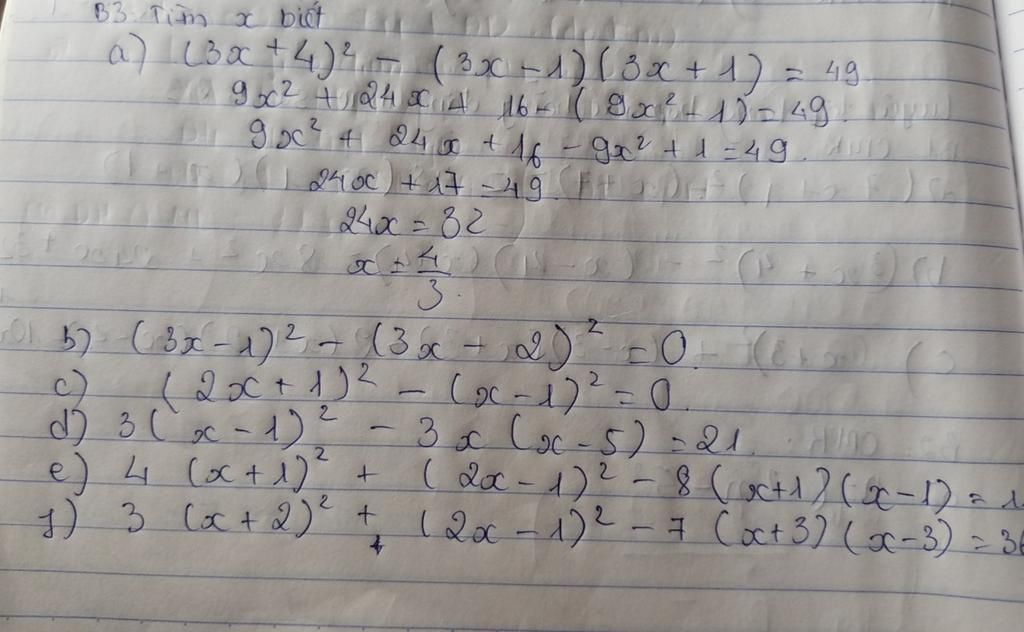 B3. Tìm x biết
a) (3x + 4)² - (3x - 1)(3x + 1) = 49
9x² + 24x + 16 - (9x² + 1) = 49.
9x² + 24x + 16 - 9x² + 1 = 49.
24x + 17 = 49.
24x = 32
x = 4/3.
b) (3x - 1)² - (3x + 2)² = 0.
c) (2x + 1)² - (x - 1)² = 0.
d) 3(x - 1)² - 3x (x - 5) = 21.
e) 4 (x + 1)² + (2x - 1)² - 8 (x+1)(x - 1) = 1
f) 3 (x + 2)² + (2x - 1)² - 7 (x+3)(x - 3) = 36